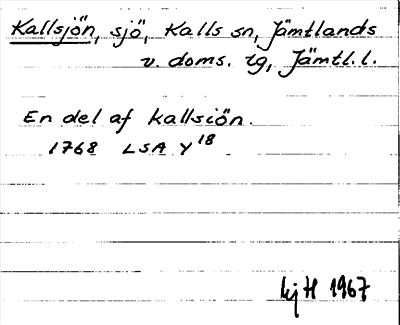 Kallsjön, sjö, Kalls sn, Jämtlands
v. doms. tg, Jämtl. l.
En del af kallsiön.
1768 LSA Y 18
kj H 1967